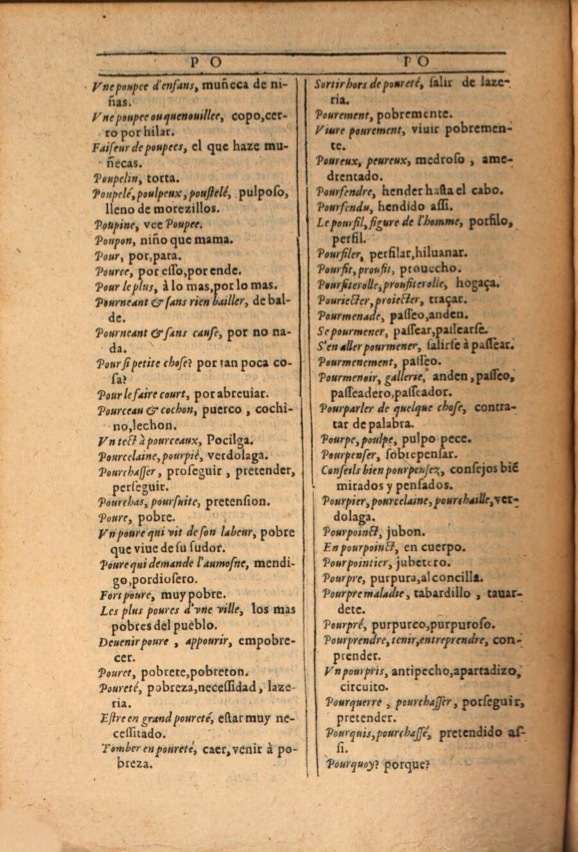 P O
Vne poupee d'enfans, muñeca de ni-
ñas.
Vne poupee ou quenouillee, copo, cer-
ro por hilar.
Faiseur de poupees, el que haze mu-
ñecas.
Poupelin, torta.
Poupelé, poulpeux, poustelé, pulposo,
lleno de morezillos.
Poupine, vee Poupee.
Poupon, niño que mama.
Pour, por, para.
Pource, por esso, por ende.
Pour le plus, à lo mas, por lo mas.
Pourneant & sans rien bailler, de bal-
de.
Pourneant & sans cause, por no na-
da.
Pour si petite chose? por tan poca co-
sa?
Pour le faire court, por abreuiar.
Pourceau & cochon, puerco, cochi-
no, lechon.
Vn tect à pourceaux, Pocilga.
Pourcelaine, pourpié, verdolaga.
Pourchasser, proseguir, pretender,
perseguir.
Pourchas, poursuite, pretension.
Poure, pobre.
Vn poure qui vit de son labeur, pobre
que viue de su sudor.
Poure qui demande l'aumosne, mendi-
go, pordiosero.
Fort poure, muy pobre.
Les plus poures d'vne ville, los mas
pobres del pueblo.
Deuenir poure, appourir, empobre-
cer.
Pouret, pobrete, pobreton.
Poureté, pobreza, necessidad, laze-
ria.
Estre en grand poureté, estar muy ne-
cessitado.
Tomber en poureté, caer, venir à po-
breza.
P O
Sortir hors de poureté, salir de laze-
ria.
Pourement, pobremente.
Viure pourement, viuir pobremen-
te.
Poureux, peureux, medroso, ame-
drentado.
Pourfendre, hender hasta el cabo.
Pourfendu, hendido assi.
Le pourfil, figure de l'homme, porfilo,
perfil.
Pourfiler, perfilar, hiluanar.
Pourfit, proufit, prouecho.
Pourfiterolle, proufiterolle, hogaça.
Pouriecter, proiecter, traçar.
Pourmenade, passeo, anden.
Se pourmener, passear, passearse.
S'en aller pourmener, salirse à passear.
Pourmenement, passeo.
Pourmenoir, gallerie, anden, passeo,
passeadero, passeador.
Pourparler de quelque chose, contra-
tar de palabra.
Pourpe, poulpe, pulpo pece.
Pourpenser, sobrepensar.
Conseils bien pourpensez, consejos biẽ
mirados y pensados.
Pourpier, pourcelaine, pourchaille, ver-
dolaga.
Pourpoinct, jubon.
En pourpoinct, en cuerpo.
Pourpointier, jubetero.
Pourpre, purpura, alconcilla.
Pourpre maladie, tabardillo, tauar-
dete.
Pourpré, purpureo, purpuroso.
Pourprendre, tenir, entreprendre, con-
prender.
Vn pourpris, antipecho, apartadizo,
circuito.
Pourquerre, pourchasser, porseguir,
pretender.
Pourquis, pourchassé, pretendido as-
si.
Pourquoy? porque?